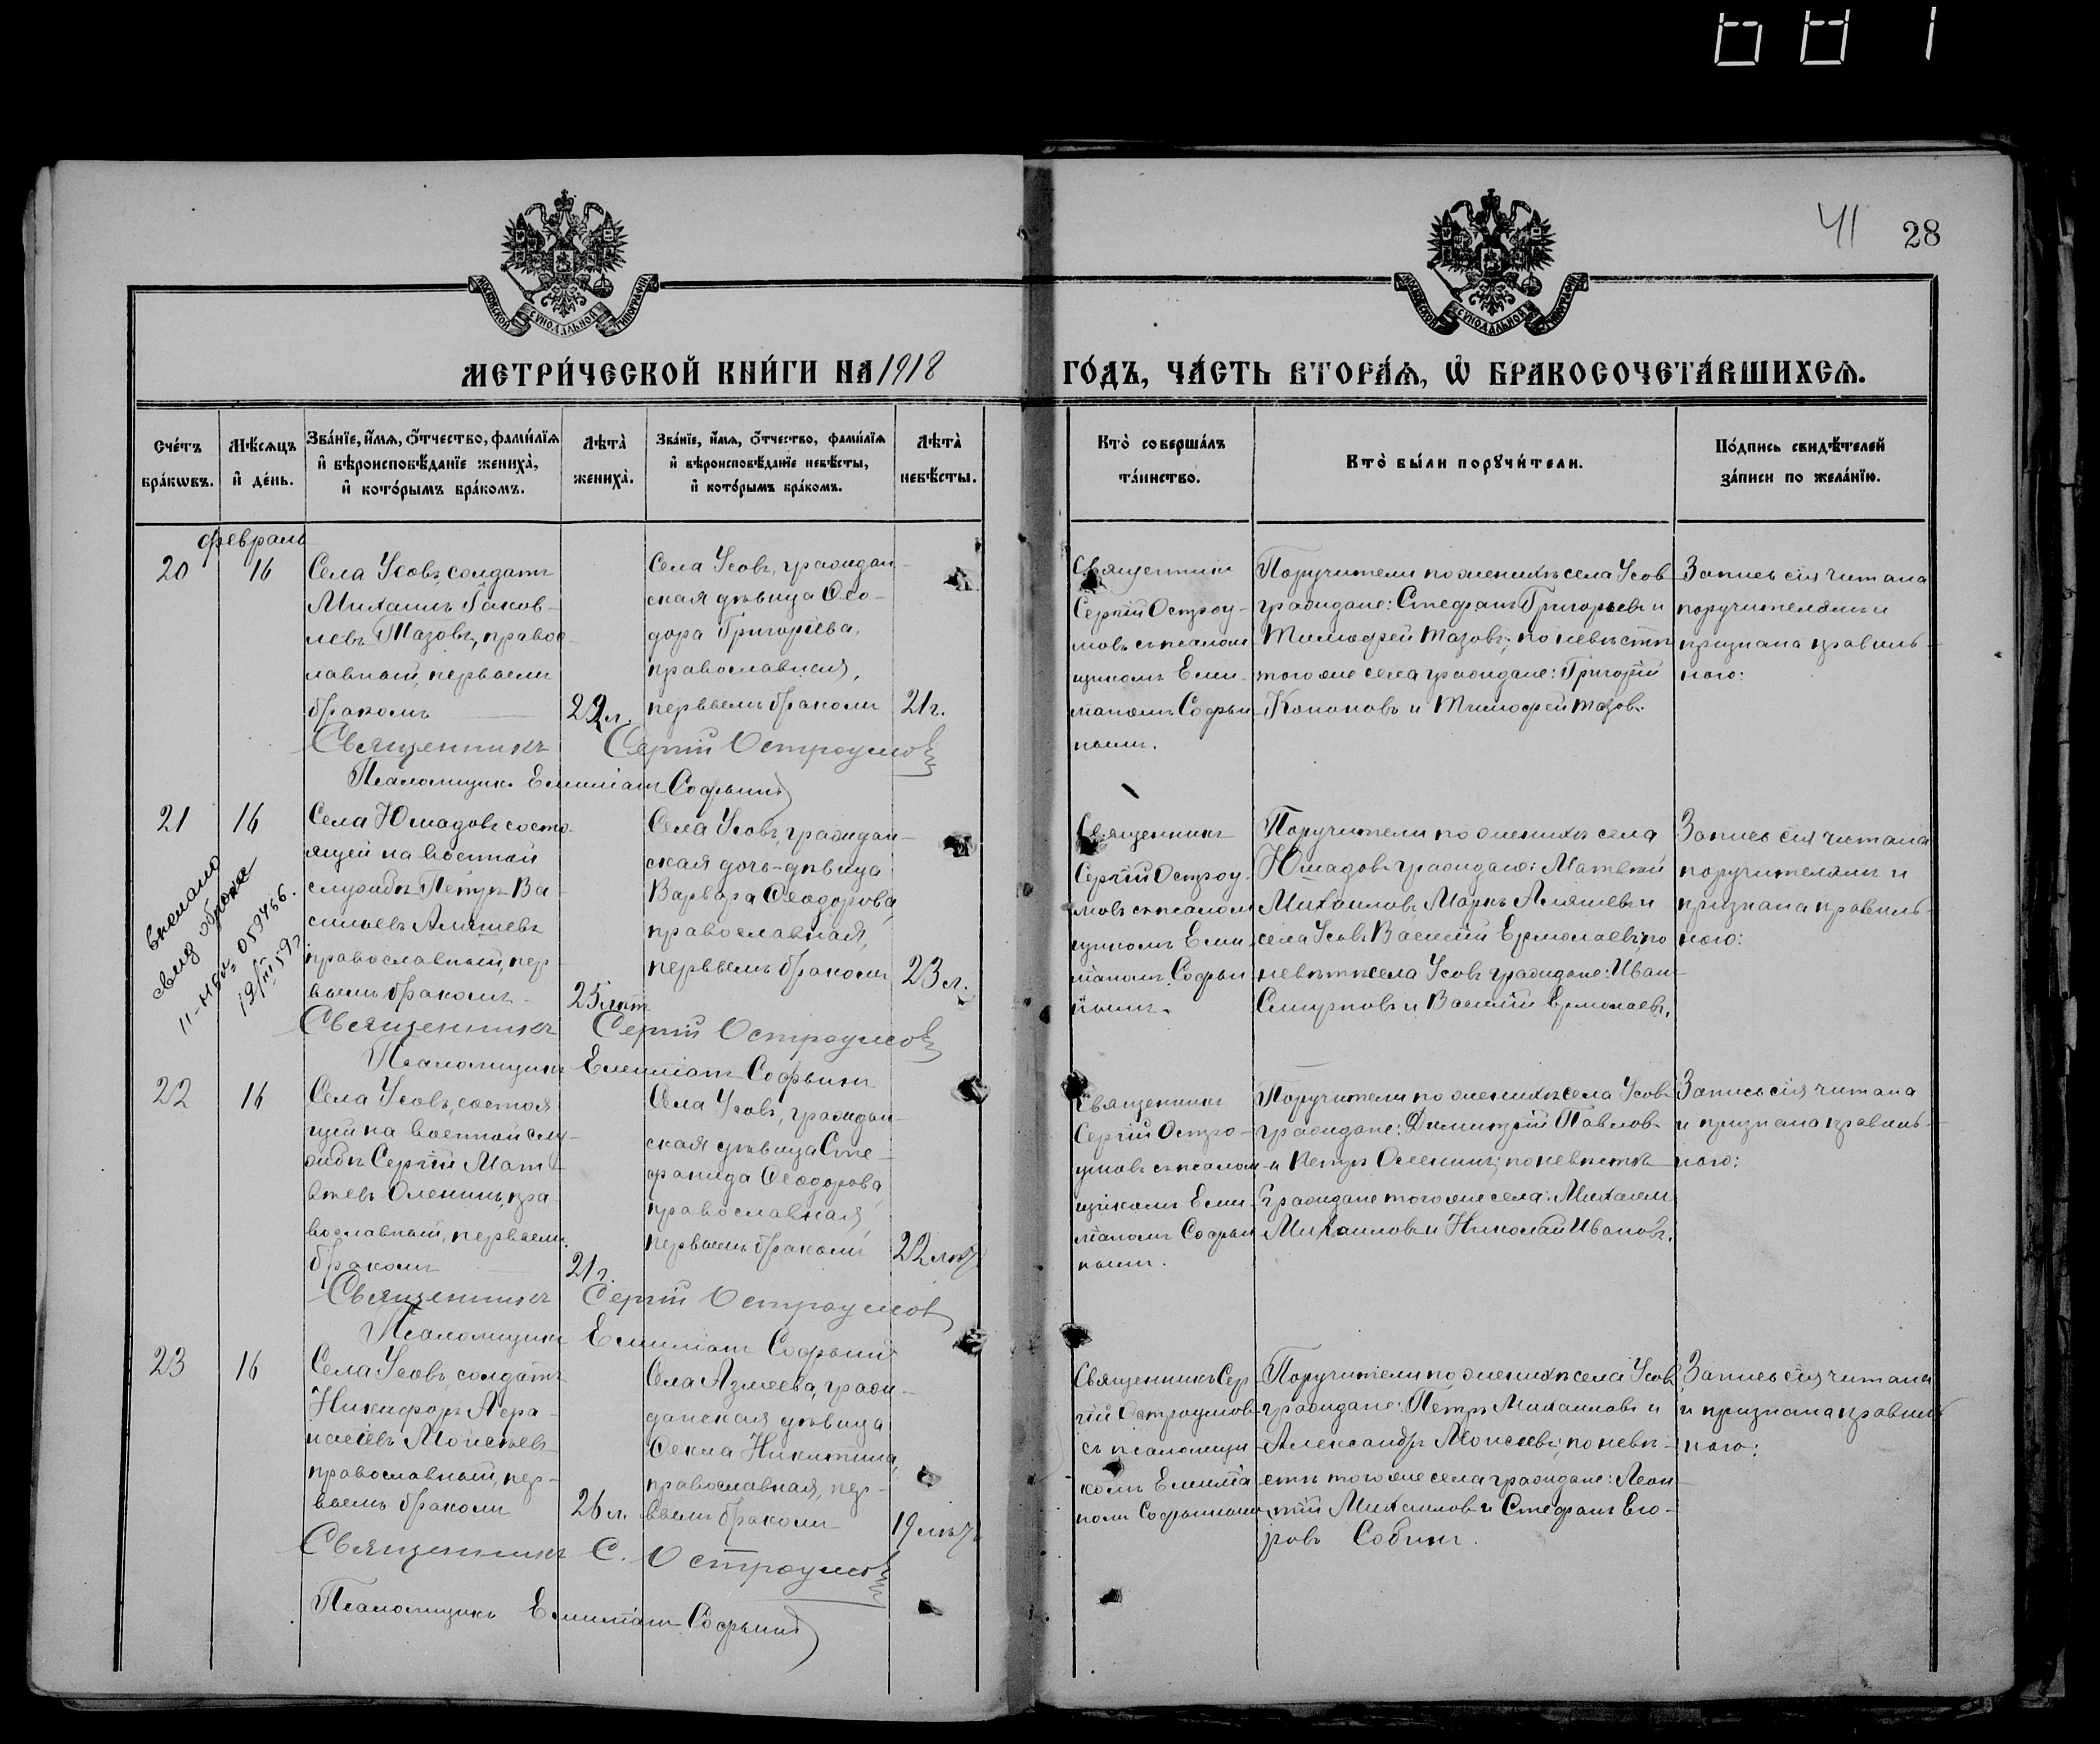 41 28
МОСКОВСКОЙ СѴНОДАЛЬНОЙ ТИПОГРАФІИ
МОСКОВСКОЙ СѴНОДАЛЬНОЙ ТИПОГРАФІИ
МЕТРИ́ЧЕСКОЙ КНИ́ГИ НА 1918 ГО́ДЪ, ЧА́СТЬ ВТОРА́Ѧ, Ѽ БРАКОСОЧЕТА́ВШИХСѦ.
Сче́тъ бра́кѡвъ.
Мѣ́сѧцъ и҆ де́нь.
Зва́нїе, и҆́мѧ, ѻ҆́тчество, фами́лїѧ и҆ вѣроисповѣ́данїе жениха̀, и҆ кото́рымъ бра́комъ.
Лѣта̀ жениха̀.
Зва́нїе, и҆́мѧ, ѻ҆́тчество, фами́лїѧ и҆ вѣроисповѣ́данїе невѣ́сты, и҆ кото́рымъ бра́комъ.
Лѣта̀ невѣ́сты.
Кто̀ соверша́лъ та́инство.
Кто̀ бы́ли порꙋчи́тели.
По́дпись свидѣ́телей за́писи по жела́нїю.
февраль
20
16
Села Усовъ, солдатъ
Михаилъ Яков-
левъ Тазовъ, правос-
лавный, первымъ
бракомъ
22 л.
Села Усовъ, граждан-
ская дѣвица Ѳео-
дора Григоріева,
православная,
первымъ бракомъ
21 г.
Священникъ
Сергій Остроу-
мовъ съ псалом-
щикомъ Еми-
ліаномъ Софьи-
нымъ.
Поручители по женихѣ села Усовъ
граждане: Стефанъ Григорьевъ и
Тимофей Тазовъ; по невѣстѣ
того же села граждане: Григорій
Кононовъ и Тимофей Тазовъ.
Запись сія читана
поручителямъ и
признана правиль-
ною:
Священникъ Сергій Остроумовъ
Псаломщикъ Емиліанъ Софьинъ
21
16
Села Юмадовъ состо-
ящій на военной
службѣ Петръ Ва-
сильевъ Аляшевъ
православный, пер-
вымъ бракомъ
25 лѣт
Села Усовъ, граждан-
ская дочь-дѣвица
Варвара Ѳеодорова,
православная,
первымъ бракомъ
23 л.
Священникъ
Сергій Остроу-
мовъ съ псалом-
щикомъ Еми-
ліаномъ Софьи-
нымъ.
Поручители по женихѣ села
Юмадовъ граждане: Матвѣй
Михаиловъ Маркъ Аляшевъ и
села Усовъ Василій Ермолаевъ; по
невѣстѣ села Усовъ граждане: Иванъ
Смирновъ и Василій Ермолаевъ.
Запись сія читана
поручителямъ и
признана правиль-
ною:
Священникъ Сергій Остроумовъ
Псаломщикъ Емиліанъ Софьинъ
22
16
Села Усовъ, состоя-
щій на военной слу-
жбѣ Сергій Мат-
вѣевъ Оленинъ, пра-
вославный, первымъ
бракомъ
21 г.
Села Усовъ, граждан-
ская дѣвица Сте-
фанида Ѳеодорова,
православная,
первымъ бракомъ
22 лѣт
Священникъ
Сергій Остро-
умовъ съ псалом-
щикомъ Еми-
ліаномъ Софьи-
нымъ.
Поручители по женихѣ села Усовъ
граждане: Димитрій Павловъ
и Петръ Оленинъ; по невѣстѣ
граждане того же села: Михаилъ
Михаиловъ и Николай Ивановъ.
Запись сія читана
и признана правиль-
ною:
Священникъ Сергій Остроумовъ
Псаломщикъ Емиліанъ Софьинъ
23
16
Села Усовъ, солдатъ
Никифоръ Афа-
насіевъ Моисѣевъ
православный, пер-
вымъ бракомъ
26 л.
Села Азмеева, граж-
данская дѣвица
Ѳекла Никитина,
православная, пер-
вымъ бракомъ
19 лѣт
Священникъ Сер-
гій Остроумовъ
съ псаломщи-
комъ Емилiа-
номъ Софьинымъ
Поручители по женихѣ села Усовъ
граждане: Петръ Михаиловъ и
Александръ Моисеевъ; по невѣ-
стѣ того же села граждане: Леон-
тій Михаиловъ и Стефанъ Его-
ровъ Собинъ.
Запись сія читана
и признана правиль-
ною:
Священникъ С. Остроумовъ
Псаломщикъ Емиліанъ Софьинъ